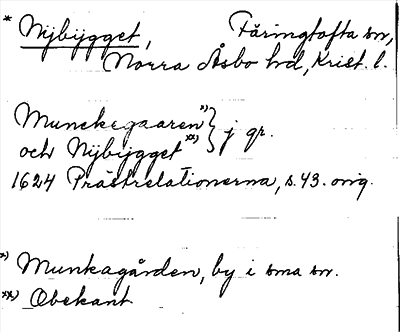 * Nÿbÿgget, Färingtofta sn,
Norra Åsbo hd, Krist. l.
Munckegaaren *) } j gr.
och Nÿbÿgget **)
1624 Prästrelationerna, s. 43. orig.
*) Munkagården, by i sma sn.
**) Obekant